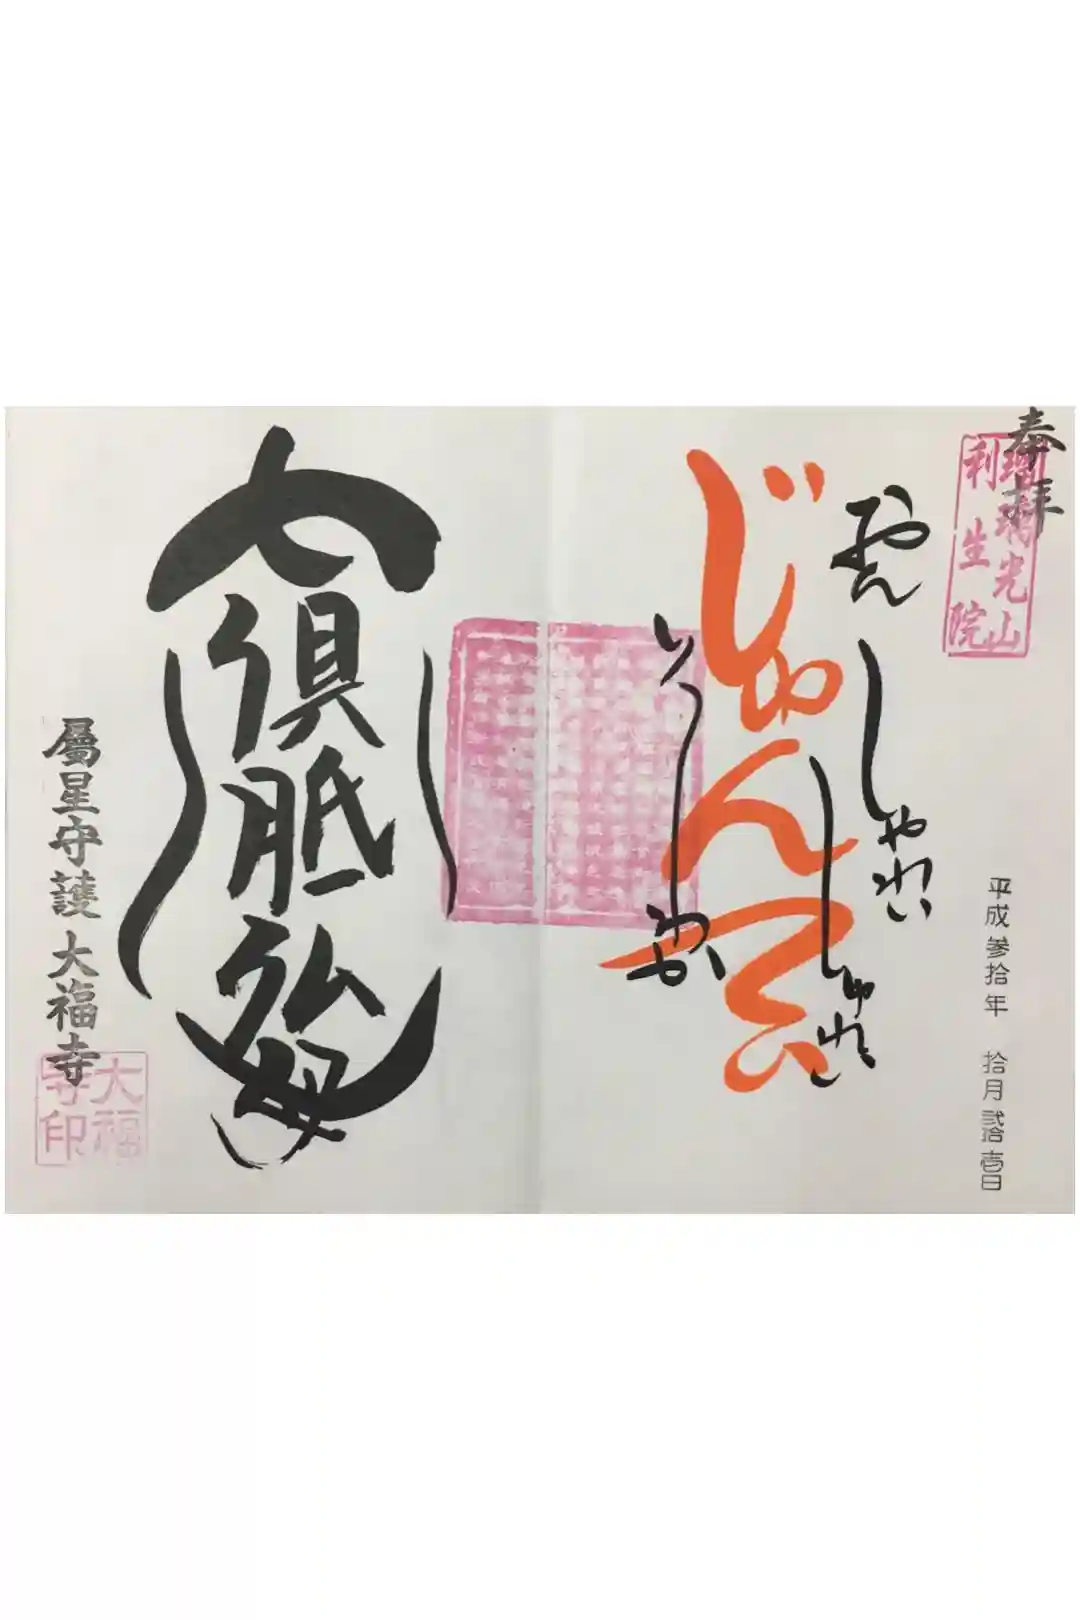 奉拝
瑠璃光山
利生院
平成参拾年 拾月弐拾壱日
おん
しゃれい
しゅれい
じゅんてい
そわか
七倶胝仏母
屬星守護 大福寺
大福
寺印